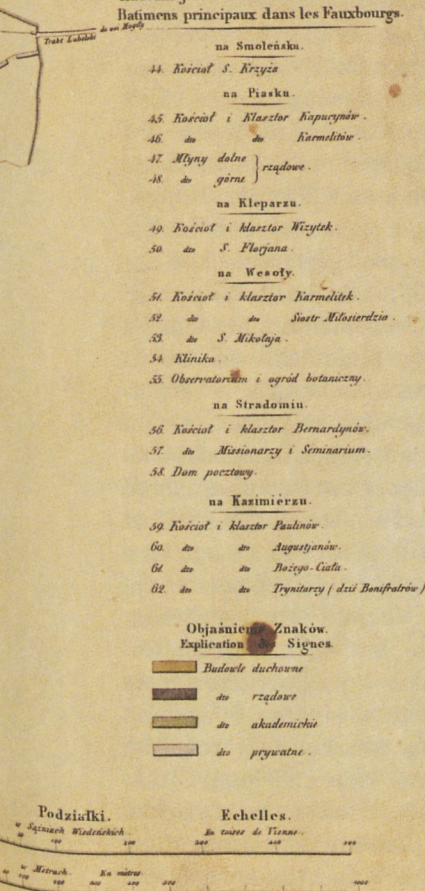 Batimens principaux dans les Fauxbourgs.
Trakt Lubelski
de ou Mogily
na Smoleńsku.
44. Kościoł S. Krzyża
na Piasku.
45. Kościoł i Klasztor Kapucynów.
46. dto dto Karmelitów.
47. Młyny dolne
rządowe.
48. dto górne
na Kleparzu.
49. Kościoł i klasztor Wizytek.
50. dto S. Florjana.
na Wesoły.
51. Kościoł i klasztor Karmelitek.
52. dto dto Siostr Miłosierdzia.
53. dto S. Mikołaja.
54. Klinika.
55. Observatorium i ogród botaniczny.
na Stradomiu.
56. Kościoł i klasztor Bernardynów.
57. dto Missionarzy i Seminarium.
58. Dom pocztowy.
na Kazimiérzu.
59. Kościoł i klasztor Paulinów.
60. dto dto Augustjanów.
61. dto dto Bożego-Ciała.
62. dto dto Trynitarzy (dziś Bonifratrów)
Objaśnienie Znaków.
Explication des Signes.
Budowle duchowne
dto rządowe
dto akademickie
dto prywatne.
Podziałki. Echelles.
w Sążniach Wiedeńskich. En toises de Vienne.
100 200 300
w Metrach. En mètres.
1000